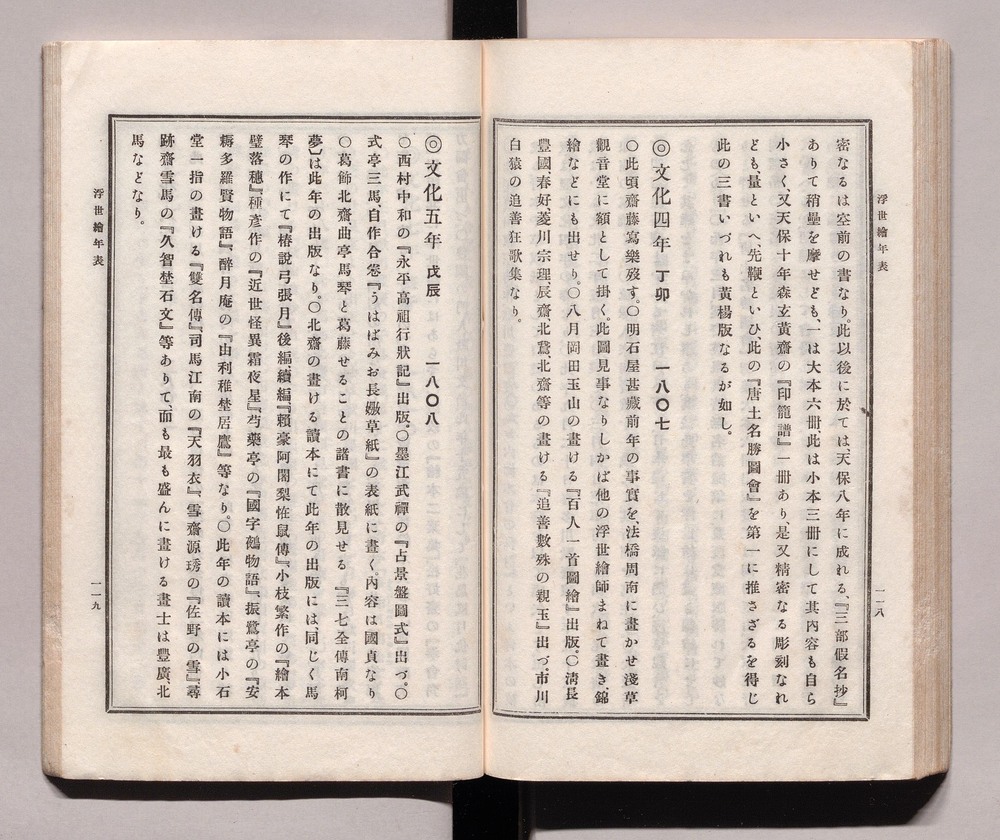 浮世繪年表
一一八
密なるは空前の書なり。此以後に於ては、天保八年に成れる、『三部假名抄』
ありて稍壘を摩せども、一は大本六册、此は小本三册にして其內容も自ら
小さく、又天保十年森玄黃齋の『印籠譜』一册あり、是又精密なる彫刻なれ
ども、量といへ、先鞭といひ、此の『唐土名勝圖會』を第一に推さざるを得じ
此の三書いづれも黃楊版なるが如し。
◎文化四年 丁卯 一八〇七
〇此頃齋藤寫樂歿す。〇明石屋甚藏前年の事實を、法橋周南に畫かせ淺草
觀音堂に額として掛く。此圖見事なりしかば他の浮世繪師まねて畫き、錦
繪などにも出せり。〇八月岡田玉山の畫ける『百人一首圖繪』出版。〇淸長
豐國、春好菱川宗理、辰齋、北鵞、北齋等の畫ける『追善數殊の親玉』出づ。市川
白猿の追善狂歌集なり。
◎文化五年 戊辰 一八〇八
〇西村中和の『永平高祖行狀記』出版。〇墨江武禪の『占景盤圖式』出づ。〇
式亭三馬、自作合卷『うはばみお長嫐草紙』の表紙に畫く。內容は國貞なり
〇葛飾北齋、曲亭馬琴と葛藤せることの諸書に散見せる『三七全傳南柯
夢』は此年の出版なり。〇北齋の畫ける讀本にて此年の出版には同じく馬
琴の作にて『椿說弓張月』後編續編『賴豪阿闍梨恠鼠傳』、小枝繁作の『繪本
璧落穗』、種彥作の『近世怪異霜夜星』、芍藥亭の『國字鵺物語』、振鷺亭の『安
褥多羅賢物語』、醉月庵の『由利稚埜居鷹』等なり。〇此年の讀本には小石
堂一指の畫ける『雙名傳』、司馬江南の『天羽衣』、雪齋源琇の『佐野の雪』、蹄
跡齋雪馬の『久智埜石文』等ありて、而も最も盛んに畫ける畫士は豐廣、北
馬などなり。
浮世繪年表
一一九